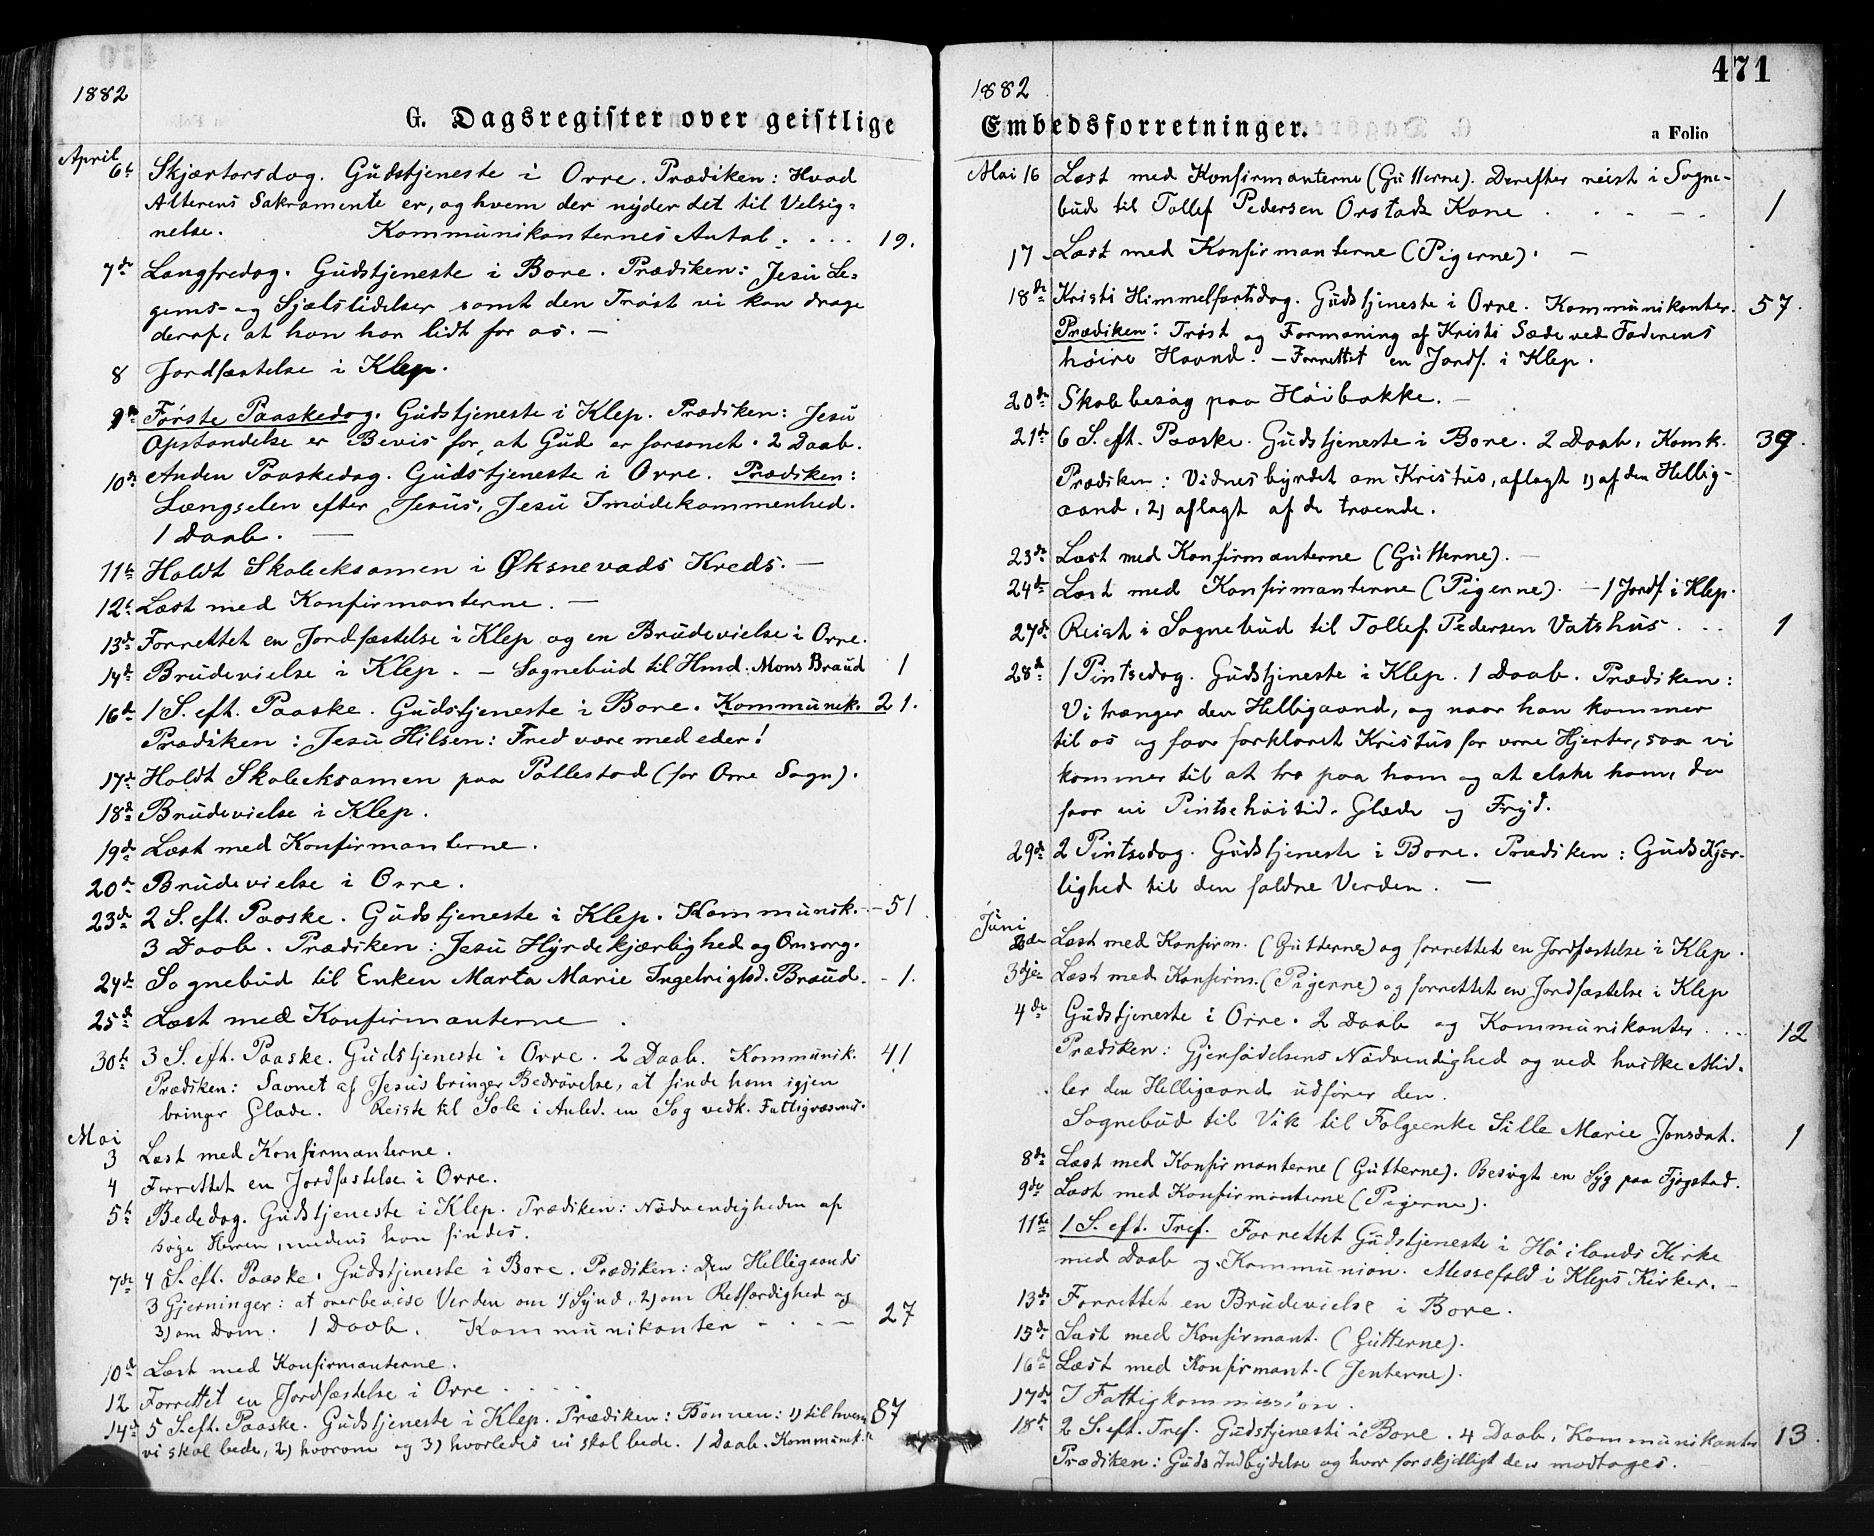 1882
G. Dagsregister over geistlige
April
6te Skjærtorsdag. Gudstjeneste i Orre. Prædiken: Hvad
Alterens Sakramente er, og hvem der nyder det til Velsig=
nelse. Kommunikanternes Antal: . . . 19.
7de Langfredag. Gudstjeneste i Bore. Prædiken: Jesu Le=
gems- og Sjælslidelser samt den Trøst vi kan drage
deraf, at han har lidt for os. —
8 Jordfæstelse i Klep.
9de Første Paaskedag. Gudstjeneste i Klep. Prædiken: Jesu
Opstandelse er Bevis for, at Gud er forsonet. 2 Daab.
10de Anden Paaskedag. Gudstjeneste i Orre. Prædiken:
Længselen efter Jesus, Jesu Imødekommenhed.
1 Daab. —
11te Holdt Skoleeksamen i Øksnevads Kreds. —
12te Læst med Konfirmanterne. —
13de Forrettet en Jordfæstelse i Klep og en Brudevielse i Orre.
14de Brudevielse i Klep. — Sognebud til Hmd. Mons Braud 1
16de 1 S. eft. Paaske. Gudstjeneste i Bore. Kommunik. 21.
Prædiken: Jesu Hilsen: Fred være med eder!
17de Holdt Skoleeksamen paa Pollestad (for Orre Sogn).
18de Brudevielse i Klep.
19de Læst med Konfirmanterne.
20de Brudevielse i Orre.
23de 2 S. eft. Paaske. Gudstjeneste i Klep. Kommunik. - 51
3 Daab. Prædiken: Jesu Hyrdekjærlighed og Omsorg.
24de Sognebud til Enken Marta Marie Ingebrigtsd. Braud. - 1.
25de Læst med Konfirmanterne.
30te 3 S. eft. Paaske. Gudstjeneste i Orre. 2 Daab. Kommunik. 41
Prædiken: Savnet af Jesus bringer Bedrøvelse, at finde ham igjen
bringer Glæde. Reiste til Sole i Anled. en Sag vedk. Fattigvæsenet.
Mai
3 Læst med Konfirmanterne.
4 Forrettet en Jordfæstelse i Orre.
5te Bededag. Gudstjeneste i Klep. Prædiken: Nødvendigheden af
søge Herren, medens han findes.
7de 4 S. eft. Paaske. Gudstjeneste i Bore. Prædiken: Den Helligaands
3 Gjerninger: at overbevise Verden om 1) Synd, 2) om Retfærdighed og
3) om Dom. 1 Daab. Kommunikanter - . . — 27
10de Læst med Konfirmanterne.
12 Forrettet en Jordfæstelse i Orre . . .
14de 5 S. eft. Paaske. Gudstjeneste i Klep. Prædiken: Bønnen: 1) til hvem 87
vi skal bede, 2) hvorom og 3) hvorledes vi skal bede. 1 Daab. Kommunik.
471
1882
Embedsforretninger.
a Folio
Mai 16 Læst med Konfirmanterne (Gutterne). Derefter reist i Sogne-
bud til Tollef Pedersen Orstads Kone . . - - . 1
17 Læst med Konfirmanterne (Pigerne). —
18de Kristi Himmelfartsdag. Gudstjeneste i Orre. Kommunikanter. 57.
Prædiken: Trøst og Formaning af Kristi Sæde ved Faderens
høire Haand. — Forrettet en Jordf. i Klep.
20de Skolebesøg paa Høibakke. —
21de 6 S. eft. Paaske. Gudstjeneste i Bore. 2 Daab, Komk. 39.
Prædiken: Vidnesbyrdet om Kristus, aflagt 1) af den Hellig-
aand, 2) aflagt af de troende.
23de Læst med Konfirmanterne (Gutterne). —
24de Læst med Konfirmanterne (Pigerne). — 1 Jordf. i Klep.
27de Reist i Sognebud til Tollef Pedersen Vatshus . . . 1
28de 1 Pintsedag. Gudstjeneste i Klep. 1 Daab. Prædiken:
Vi trænger den Helligaand, og naar han kommer
til os og faar forklaret Kristus for vore Hjerter, saa vi
kommer til at tro paa ham og at elske ham, da
faar vi Pintsehøitid. Glæde og Fryd.
29de 2 Pintsedag. Gudstjeneste i Bore. Prædiken: Guds Kjær-
lighed til den faldne Verden. —
Juni
2den Læst med Konfirm. (Gutterne) og forrettet en Jordfæstelse i Klep.
3dje Læst med Konfirm. (Pigerne) og forrettet en Jordfæstelse i Klep
4de Gudstjeneste i Orre. 2 Daab og Kommunikanter . . - 12
Prædiken: Gjenfødelsens Nødvendighed og ved hvilke Mid-
ler den Helligaand udfører den.
Sognebud til Vik til Følgeenke Sille Marie Jonsdat. 1
8de Læst med Konfirmanterne (Gutterne). Besøgt en Syg paa Fjogstad.
9de Læst med Konfirmanterne (Pigerne).
11te 1 S. eft. Tref. Forrettet Gudstjeneste i Høilands Kirke
med Daab og Kommunion. Messefald i Kleps Kirker. —
13de Forrettet en Brudevielse i Bore.
15de Læst med Konfirmant. (Gutterne).
16de Læst med Konfirmant. (Jenterne).
17de I Fattigkommission.
18de 2 S. eft. Tref. Gudstjeneste i Bore. 4 Daab, Kommunikanter 13.
Prædiken: Guds Indbydelse og hvor forskjelligt den modtages.